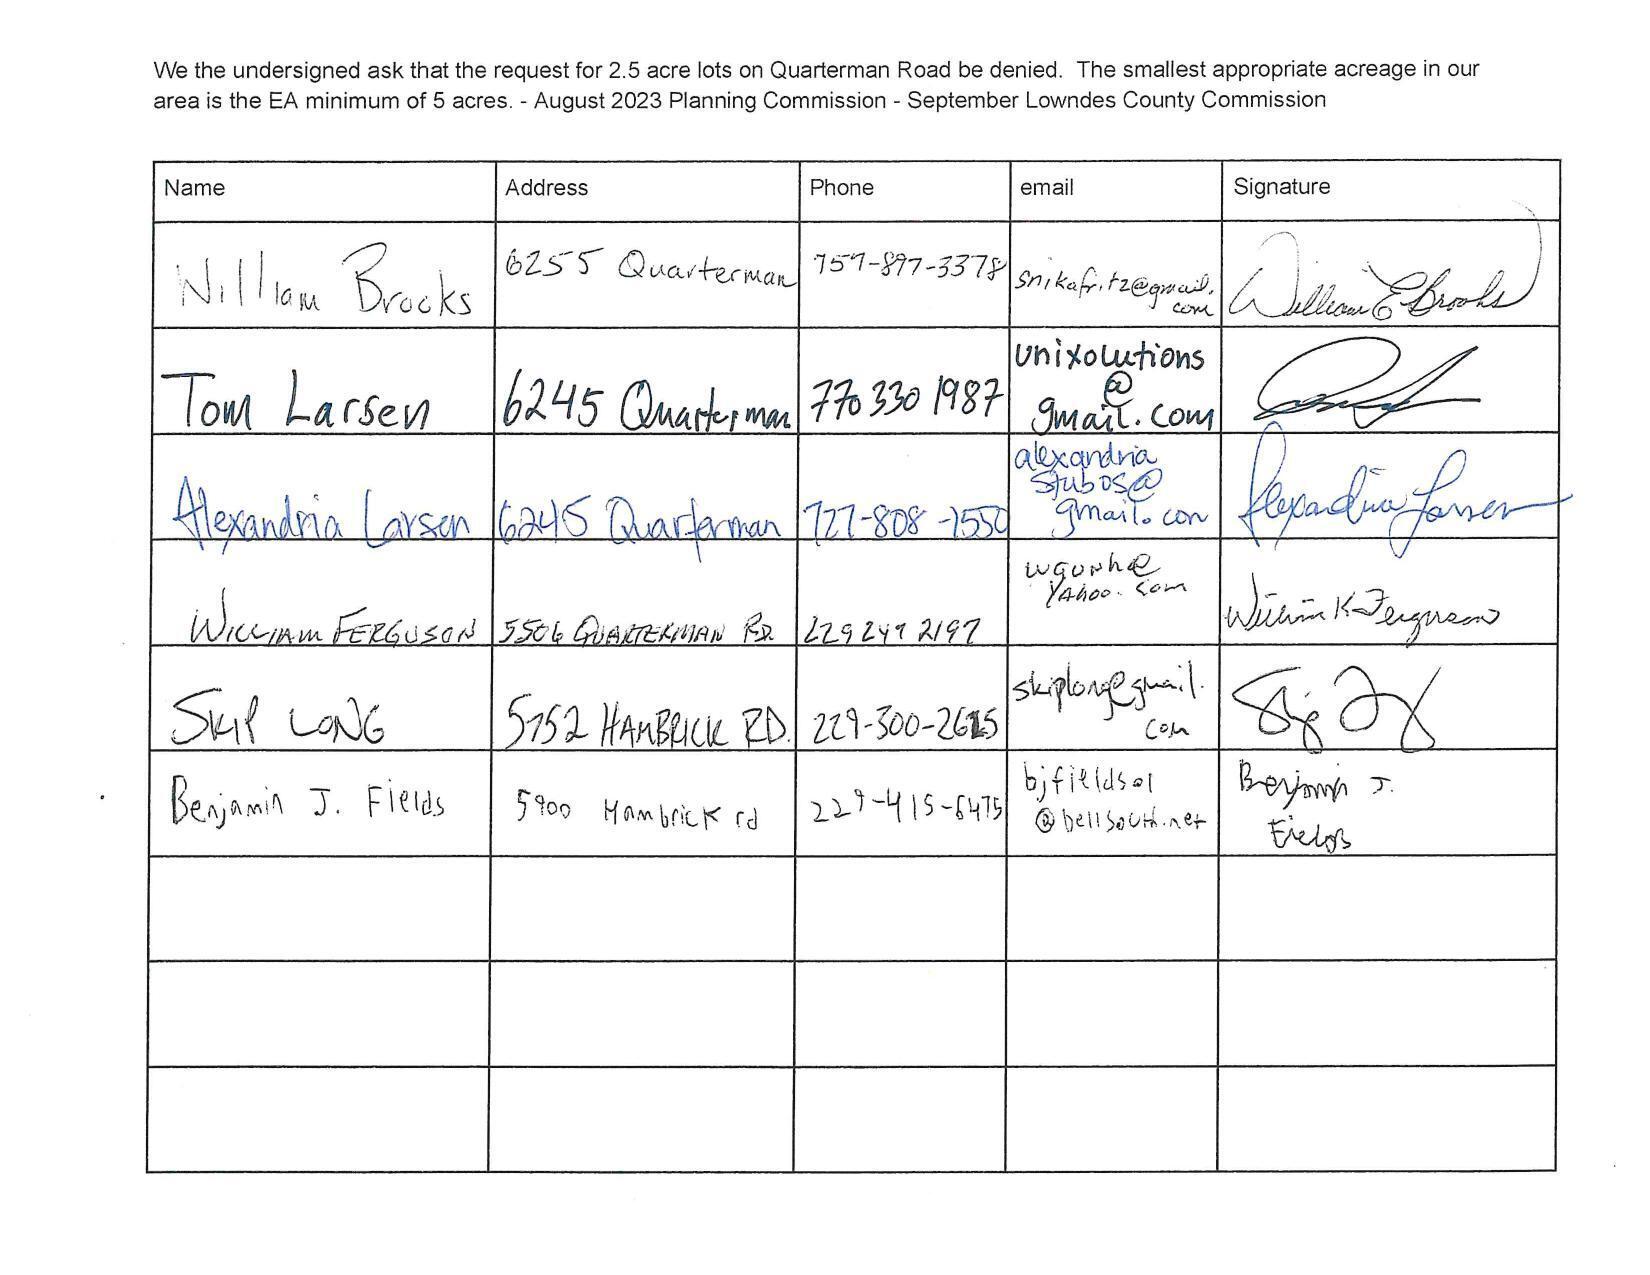 We the undersigned ask that the request for 2.5 acre lots on Quarterman Road be denied. The smallest appropriate acreage in our
area is the EA minimum of 5 acres. - August 2023 Planning Commission - September Lowndes County Commission
Name Address Phone email Signature
William Brooks 6255 Quarterman 757-897-3378 snikafritz@gmail.
com William E Brooks
Tom Larsen 6245 Quarterman 770 330 1987 unixolutions
@
gmail.com
Alexandria Larsen 6245 Quarterman 727-808-1550 alexandria
stubos@
gmail.com Alexandria Larsen
WILLIAM FERGUSON 5506 QUARTERMAN RD. 229 247 2197 wgunh@
YAHOO.com William K Ferguson
SKIP LONG 5752 HAMBRICK RD. 229-300-2615 skiplong@gmail.
com Skip Long
Benjamin J. Fields 5900 Hambrick rd 229-415-6475 bjfields01
@bellsouth.net Benjamin J.
Fields